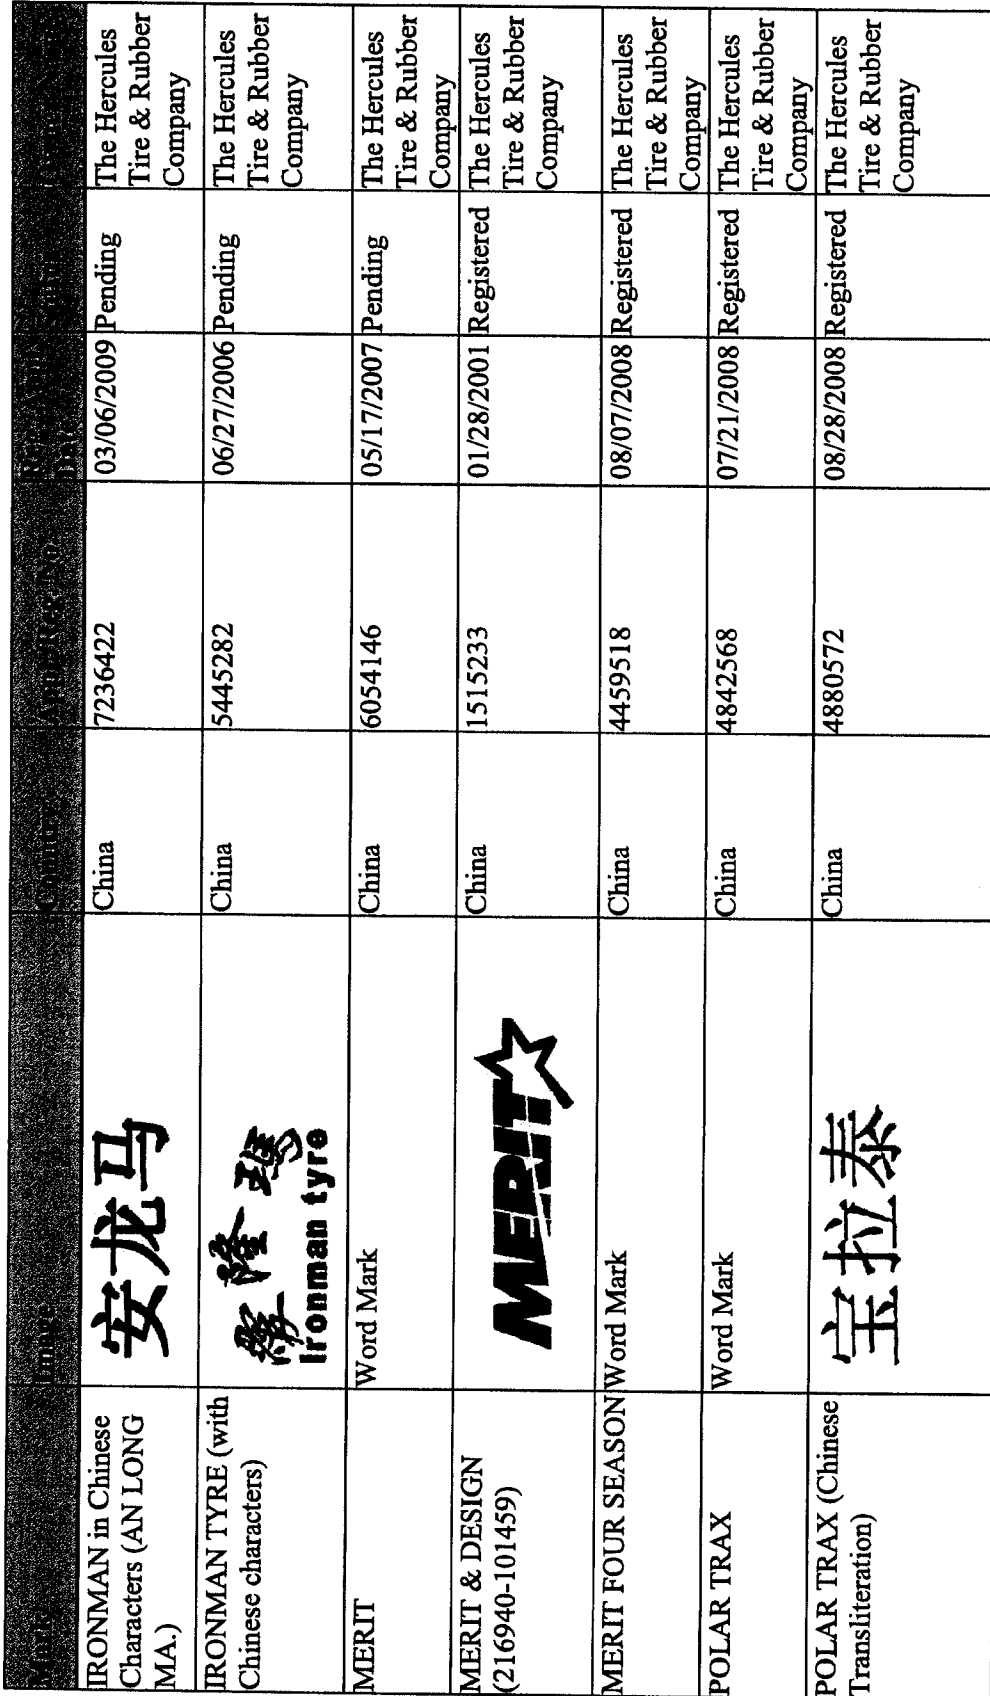 Mark Image Country App./Reg. No.
IRONMAN in Chinese
Characters (AN LONG
MA.)
安龙马
China
7236422
03/06/2009
Pending
The Hercules
Tire & Rubber
Company
IRONMAN TYRE (with
Chinese characters)
Ironman tyre
China
5445282
06/27/2006
Pending
The Hercules
Tire & Rubber
Company
MERIT
Word Mark
China
6054146
05/17/2007
Pending
The Hercules
Tire & Rubber
Company
MERIT & DESIGN
(216940-101459)
MERIT
China
1515233
01/28/2001
Registered
The Hercules
Tire & Rubber
Company
MERIT FOUR SEASON
Word Mark
China
4459518
08/07/2008
Registered
The Hercules
Tire & Rubber
Company
POLAR TRAX
Word Mark
China
4842568
07/21/2008
Registered
The Hercules
Tire & Rubber
Company
POLAR TRAX (Chinese
Transliteration)
宝拉泰
China
4880572
08/28/2008
Registered
The Hercules
Tire & Rubber
Company